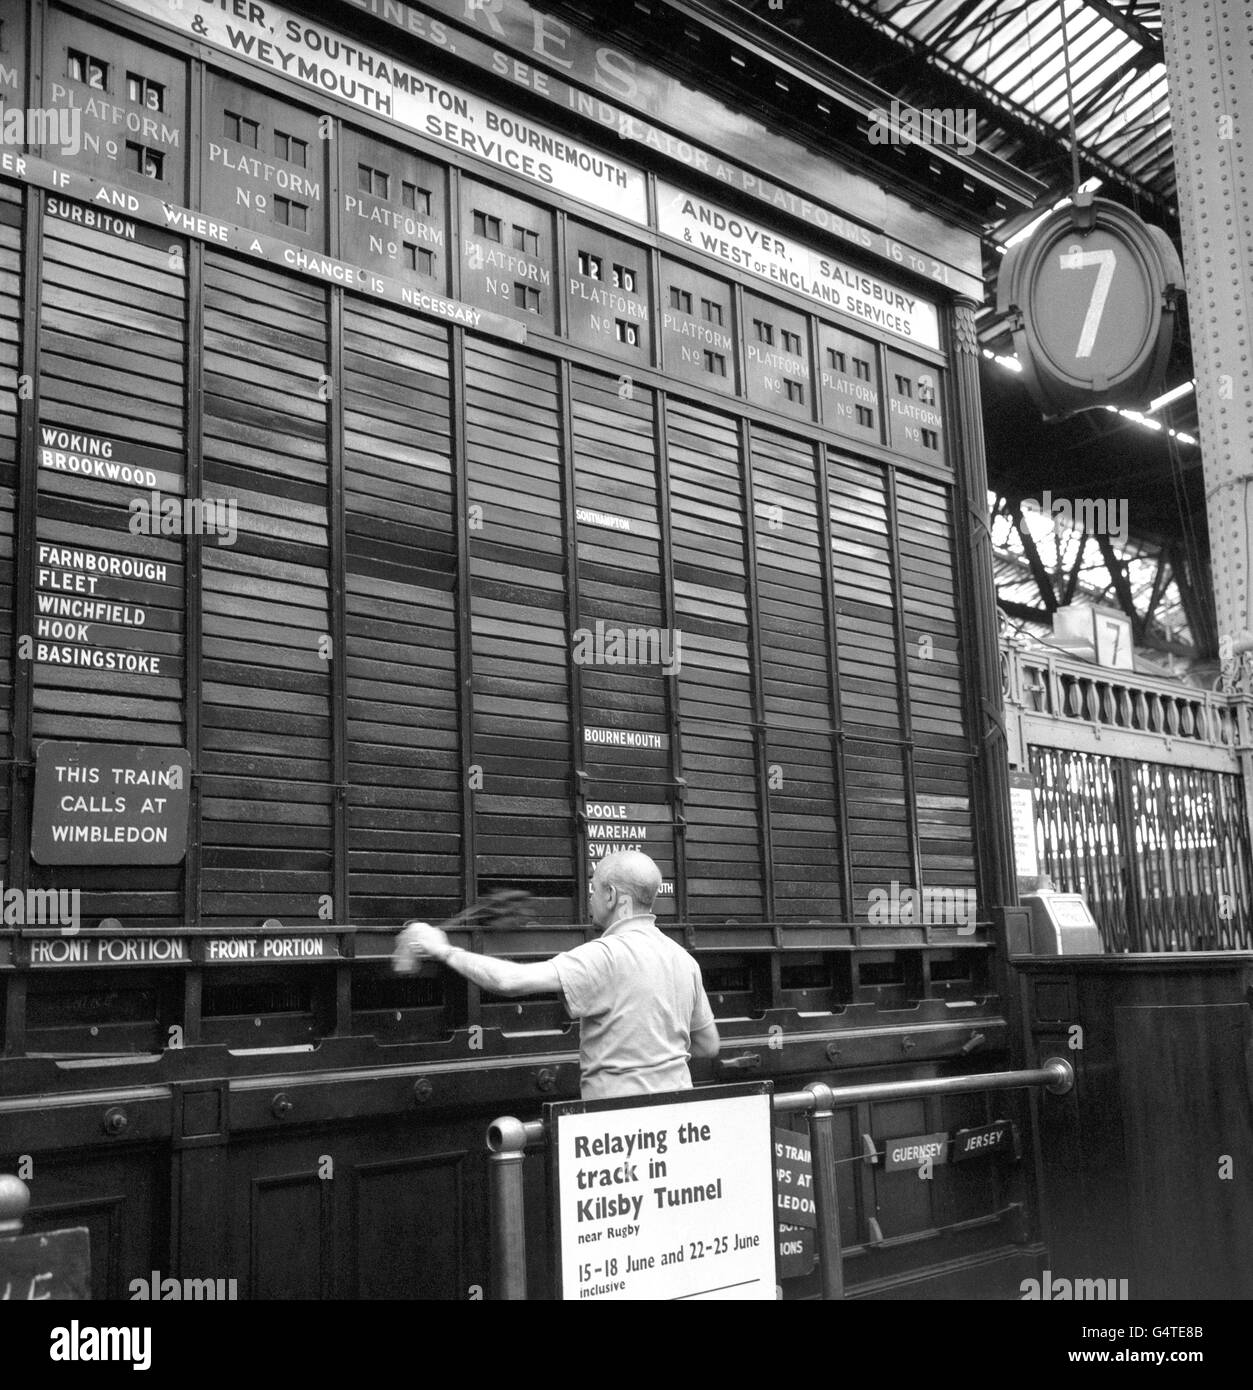 RES
LINES, SEE INDICATOR AT PLATFORMS 16 TO 21
STER, SOUTHAMPTON, BOURNEMOUTH
& WEYMOUTH SERVICES
ANDOVER, SALISBURY
& WEST OF ENGLAND SERVICES
12 13
PLATFORM
No 9
PLATFORM
No
PLATFORM
No
PLATFORM
No
12 30
PLATFORM
No 10
PLATFORM
No
PLATFORM
No
PLATFORM
No
PLATFORM
No
ER IF AND WHERE A CHANGE IS NECESSARY
7
SURBITON
WOKING
BROOKWOOD
FARNBOROUGH
FLEET
WINCHFIELD
HOOK
BASINGSTOKE
THIS TRAIN
CALLS AT
WIMBLEDON
FRONT PORTION
FRONT PORTION
SOUTHAMPTON
BOURNEMOUTH
POOLE
WAREHAM
SWANAGE
UTH
7
Relaying the
track in
Kilsby Tunnel
near Rugby
15-18 June and 22-25 June
inclusive
IS TRAIN
OPS AT
LEDON
IONS
GUERNSEY
JERSEY
alamy
Image ID: G4TE8B
www.alamy.com